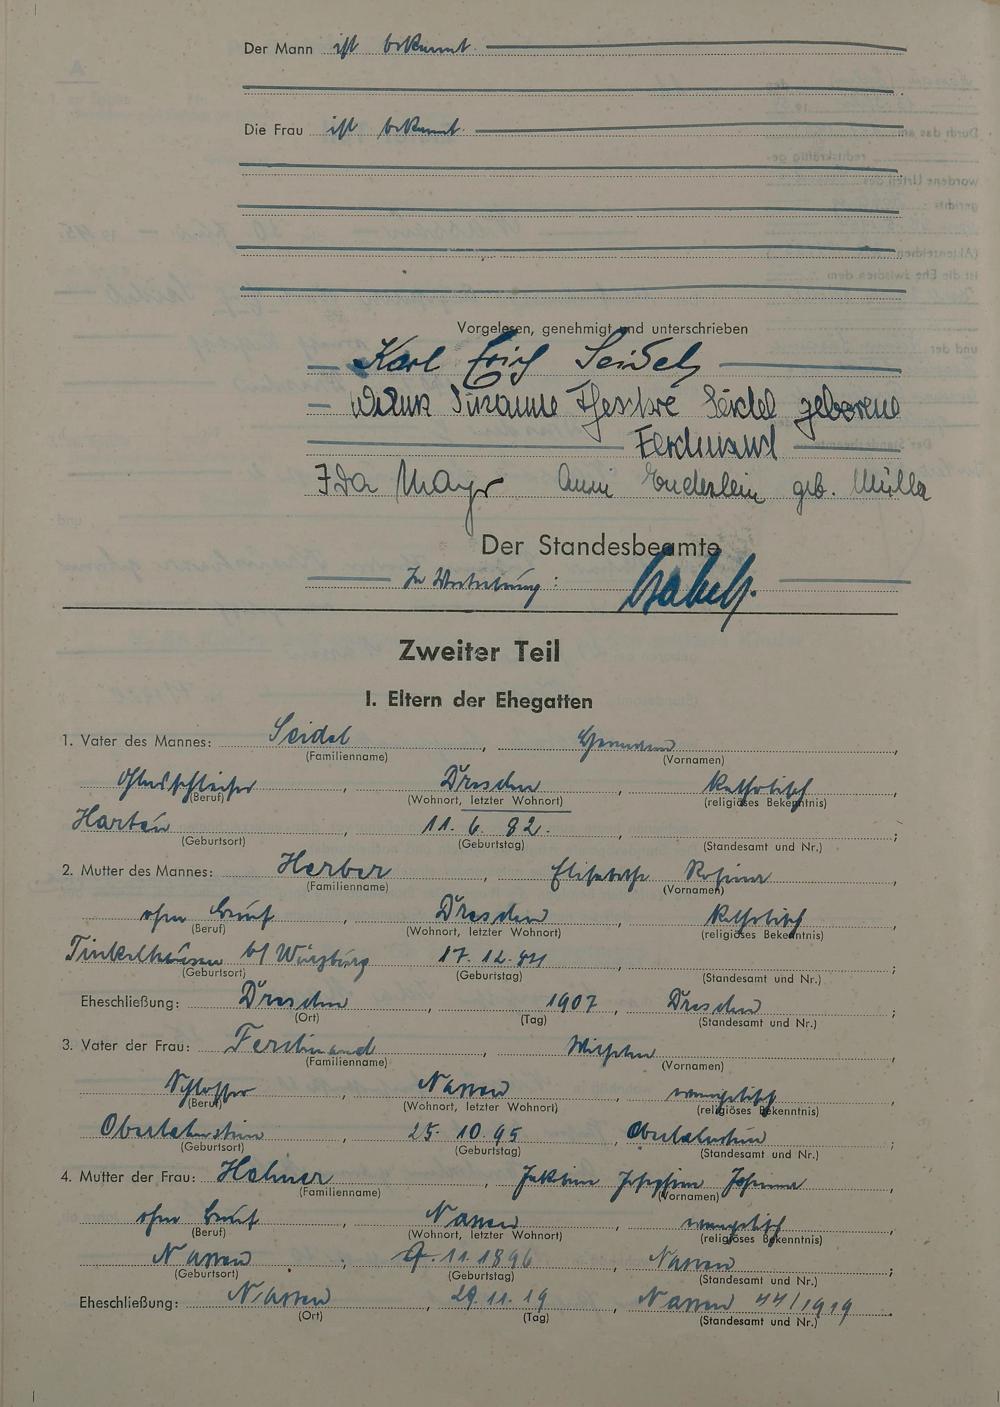 Der Mann ist bekannt.
Die Frau ist bekannt.
Vorgelesen, genehmigt und unterschrieben
Karl Erich Seidel
Suzanne Seidel geborene
Ferdinand
Ida Mayr Anni Enderlein geb. Müller
Der Standesbeamte
In Vertretung:
Zweiter Teil
I. Eltern der Ehegatten
1. Vater des Mannes: Seidel,
(Familienname) (Vornamen)
Glasschleifer, Dresden, katholisch,
(Beruf) (Wohnort, letzter Wohnort) (religiöses Bekenntnis)
11. 6. 82.
(Geburtsort) (Geburtstag) (Standesamt und Nr.)
2. Mutter des Mannes: Herber, Elisabetha Rosina,
(Familienname) (Vornamen)
ohne Beruf, Dresden, katholisch,
(Beruf) (Wohnort, letzter Wohnort) (religiöses Bekenntnis)
b/ Würzburg 17. 12.
(Geburtsort) (Geburtstag) (Standesamt und Nr.)
Eheschließung: Dresden, 1907, Dresden;
(Ort) (Tag) (Standesamt und Nr.)
3. Vater der Frau: Ferdinand, Wilhelm,
(Familienname) (Vornamen)
Schlosser, Nassau, evangelisch,
(Beruf) (Wohnort, letzter Wohnort) (religiöses Bekenntnis)
Oberlahnstein, 25. 10. 95, Oberlahnstein;
(Geburtsort) (Geburtstag) (Standesamt und Nr.)
4. Mutter der Frau: Josefine Johanna,
(Familienname) (Vornamen)
ohne Beruf, Nassau, evangelisch,
(Beruf) (Wohnort, letzter Wohnort) (religiöses Bekenntnis)
Nassau, 11. 1896, Nassau;
(Geburtsort) (Geburtstag) (Standesamt und Nr.)
Eheschließung: Nassau, 29. 11. 19, Nassau 44/1919.
(Ort) (Tag) (Standesamt und Nr.)